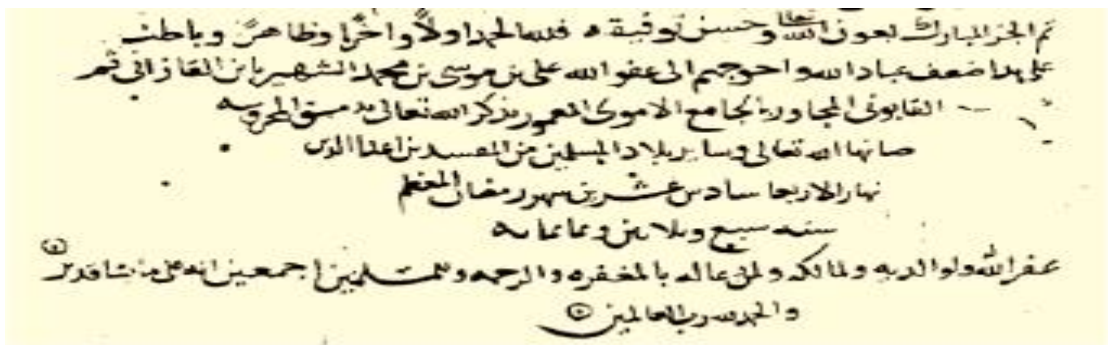 تم الجزء المبارك بعون الله تعالى وحسن توفيقه فلله الحمد اولا واخرا وظاهرا وباطنا
على يد اضعف عباد الله واحوجهم الى عفو الله على بن موسى بن محمد الشهير بابن القازانى ثم
القابونى المجاور بالجامع الاموى المعمور بذكر الله تعالى بدمشق المحروسه
صانها الله تعالى وساير بلاد المسلمين من المفسدين اعدا الدين
نهار الاربعا سادس عشرين شهر رمضان المعظم
سنه سبع وثلاثين وثمانمايه
غفر الله له ولوالديه ولمالكه ولمن دعا له بالمغفره والرحمه وللمسلمين اجمعين انه على ما يشا قدير
والحمد لله رب العالمين